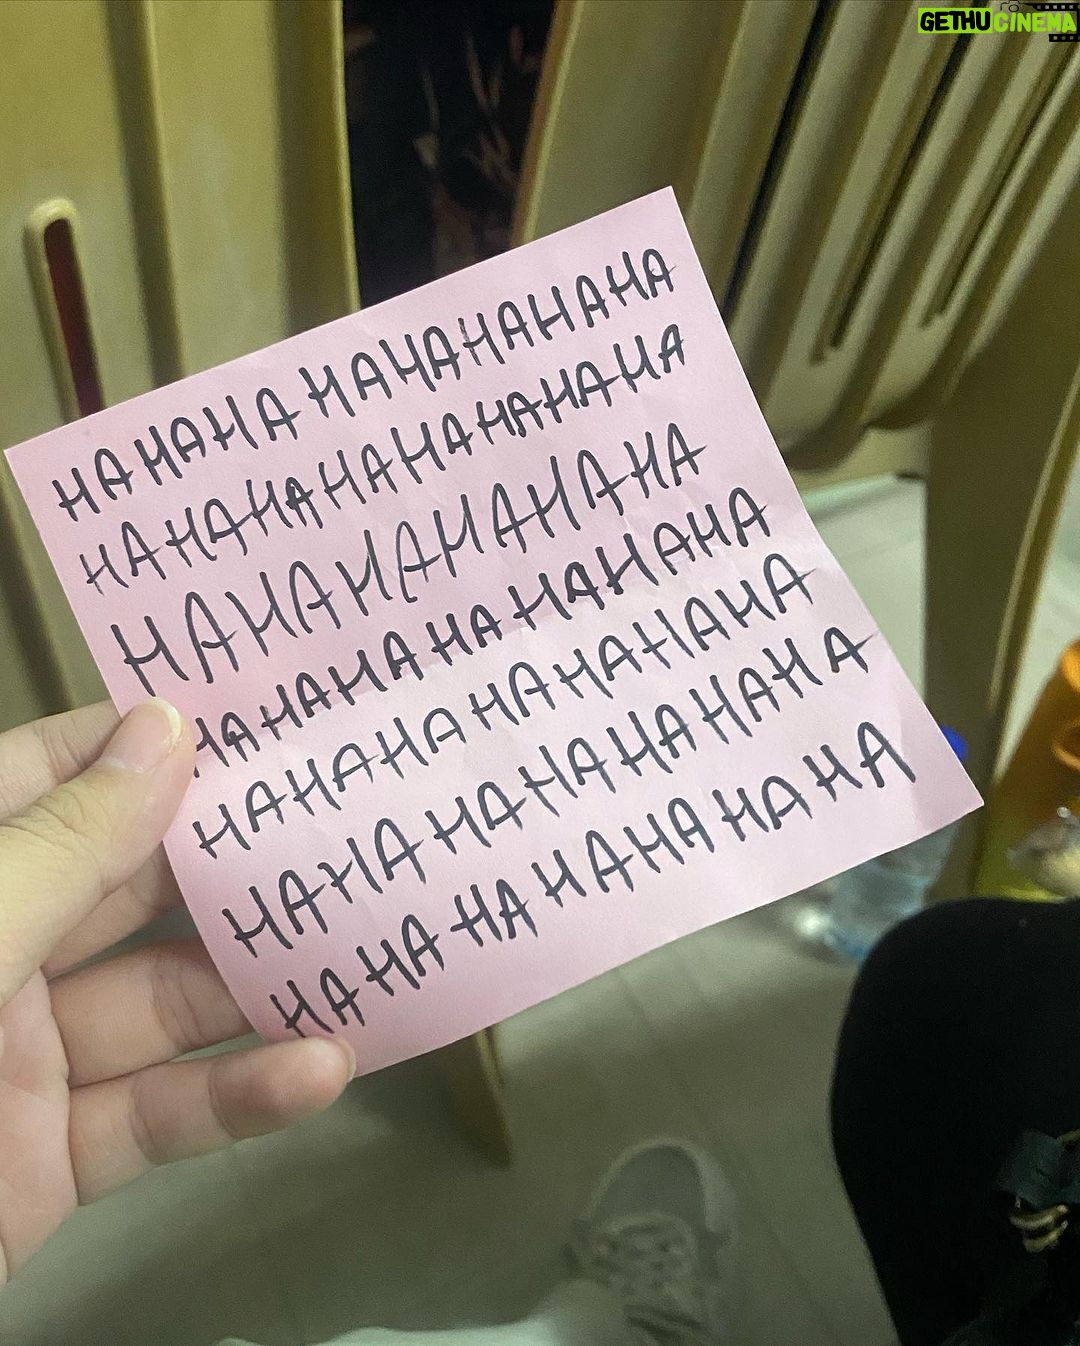 GETHUCINEMA
HAHAHA HAHAHAHAHA
HAHAHAHAHAHAHAHA
HAHAHAHAHAHA
HAHAHAHAHAHAHA
HAHAHAHAHAHAHA
HAHAHAHAHAHAHA
HAHAHAHAHAHAHA